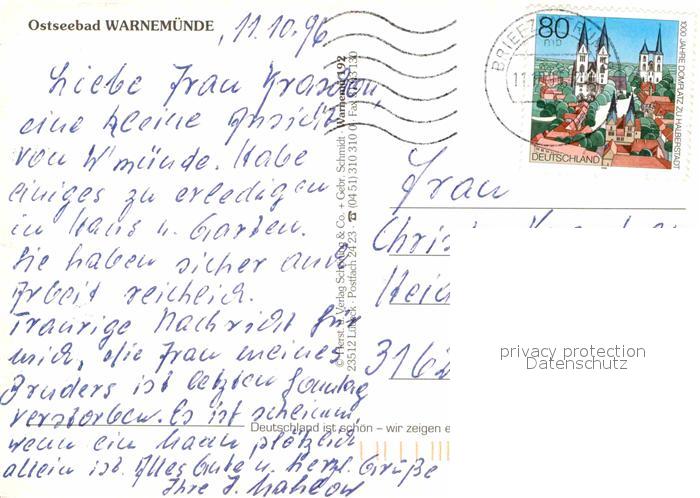 Ostseebad WARNEMÜNDE
, 11.10.96
Liebe Frau
eine kleine Ansicht
von W'münde. Habe
einiges zu erledigen
in Haus u. Garten.
Sie haben sicher auch
Arbeit reichlich.
Traurige Nachricht für
mich, die Frau meines
Bruders ist letzten Sonntag
verstorben. Es ist schlimm,
wenn ein Mann plötzlich
allein ist. Alles Gute u. herzl. Grüße
Ihre J.
© Herst. u. Verlag Schöning & Co. + Gebr. Schmidt · Warnemü 192
23512 Lübeck · Postfach 24 23 · ☎ (04 51) 310 310 · Fax
Deutschland ist schön – wir zeigen e
BRIEFZENTRUM
80
DEUTSCHLAND
1000 JAHRE DOMPLATZ ZU HALBERSTADT
Frau
Heid
3162
privacy protection
Datenschutz